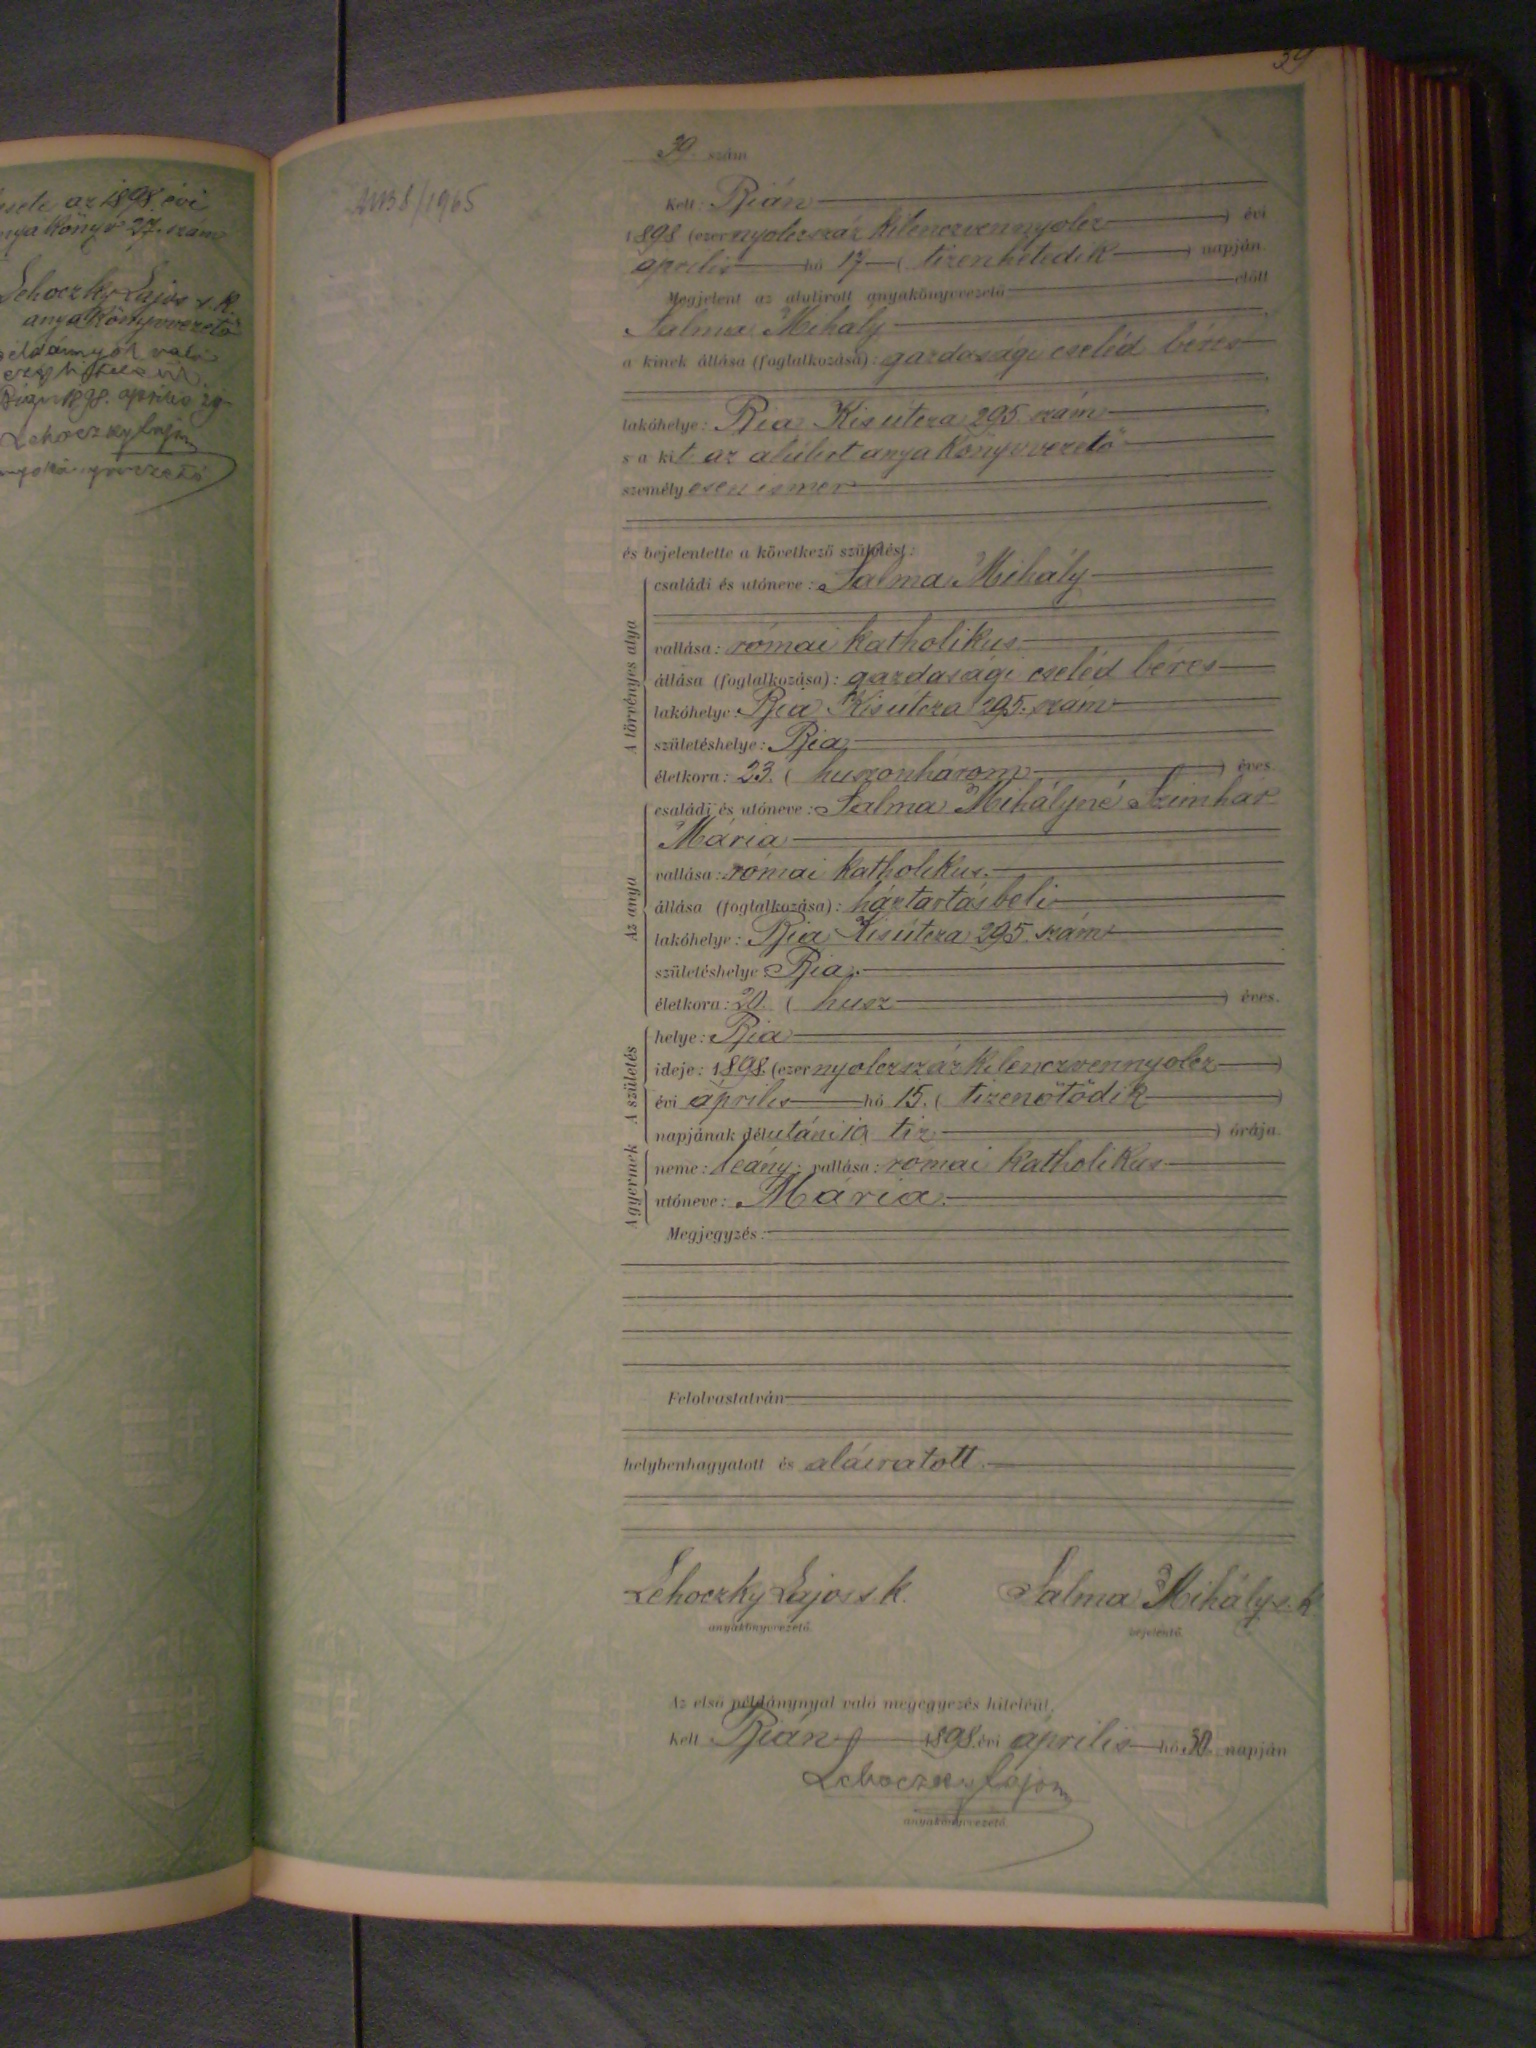 az 1898. évi
anyakönyv 27. szám
Lehoczky Lajos s. k.
anyakönyvvezető
való
április 29
Lehoczky Lajos
39
39. szám
1965
Kelt: Bián
1898 (ezernyolczszáz kilenczvennyolcz ) évi
április hó 17 ( tizenhetedik ) napján
Megjelent az alulirott anyakönyvvezető előtt
Salma Mihály
a kinek állása (foglalkozása): gazdasági cseléd béres
lakóhelye: Bia Kisútcza 295. szám
s a kit az alúlirt anyakönyvvezető
személyesen ismer
és bejelentette a következő születést:
A törvényes atya
családi és utóneve: Salma Mihály
vallása: római katholikus
állása (foglalkozása): gazdasági cseléd béres
lakóhelye: Bia Kisútcza 295. szám
születéshelye: Bia
életkora: 23. ( huszonhárom ) éves
Az anya
családi és utóneve: Salma Mihályné Szimhár
Mária
vallása: római katholikus.
állása (foglalkozása): háztartásbeli
lakóhelye: Bia Kisútcza 295. szám
születéshelye: Bia.
életkora: 20. ( husz ) éves.
A születés
helye: Bia
ideje: 1898. (ezernyolczszáz kilenczvennyolcz )
évi április hó 15. ( tizenötödik )
napjának délutáni 10 tiz ) órája.
A gyermek
neme: leány; vallása: római katholikus
utóneve: Mária.
Megjegyzés:
Felolvastatván
helybenhagyatott és aláiratott.
Lehoczky Lajos s. k. Salma Mihály s. k.
anyakönyvvezető. bejelentő.
Az első példánynyal való megegyezés hiteléül.
Kelt Bián 1898. évi április hó 30. napján
Lehoczky Lajos
anyakönyvvezető